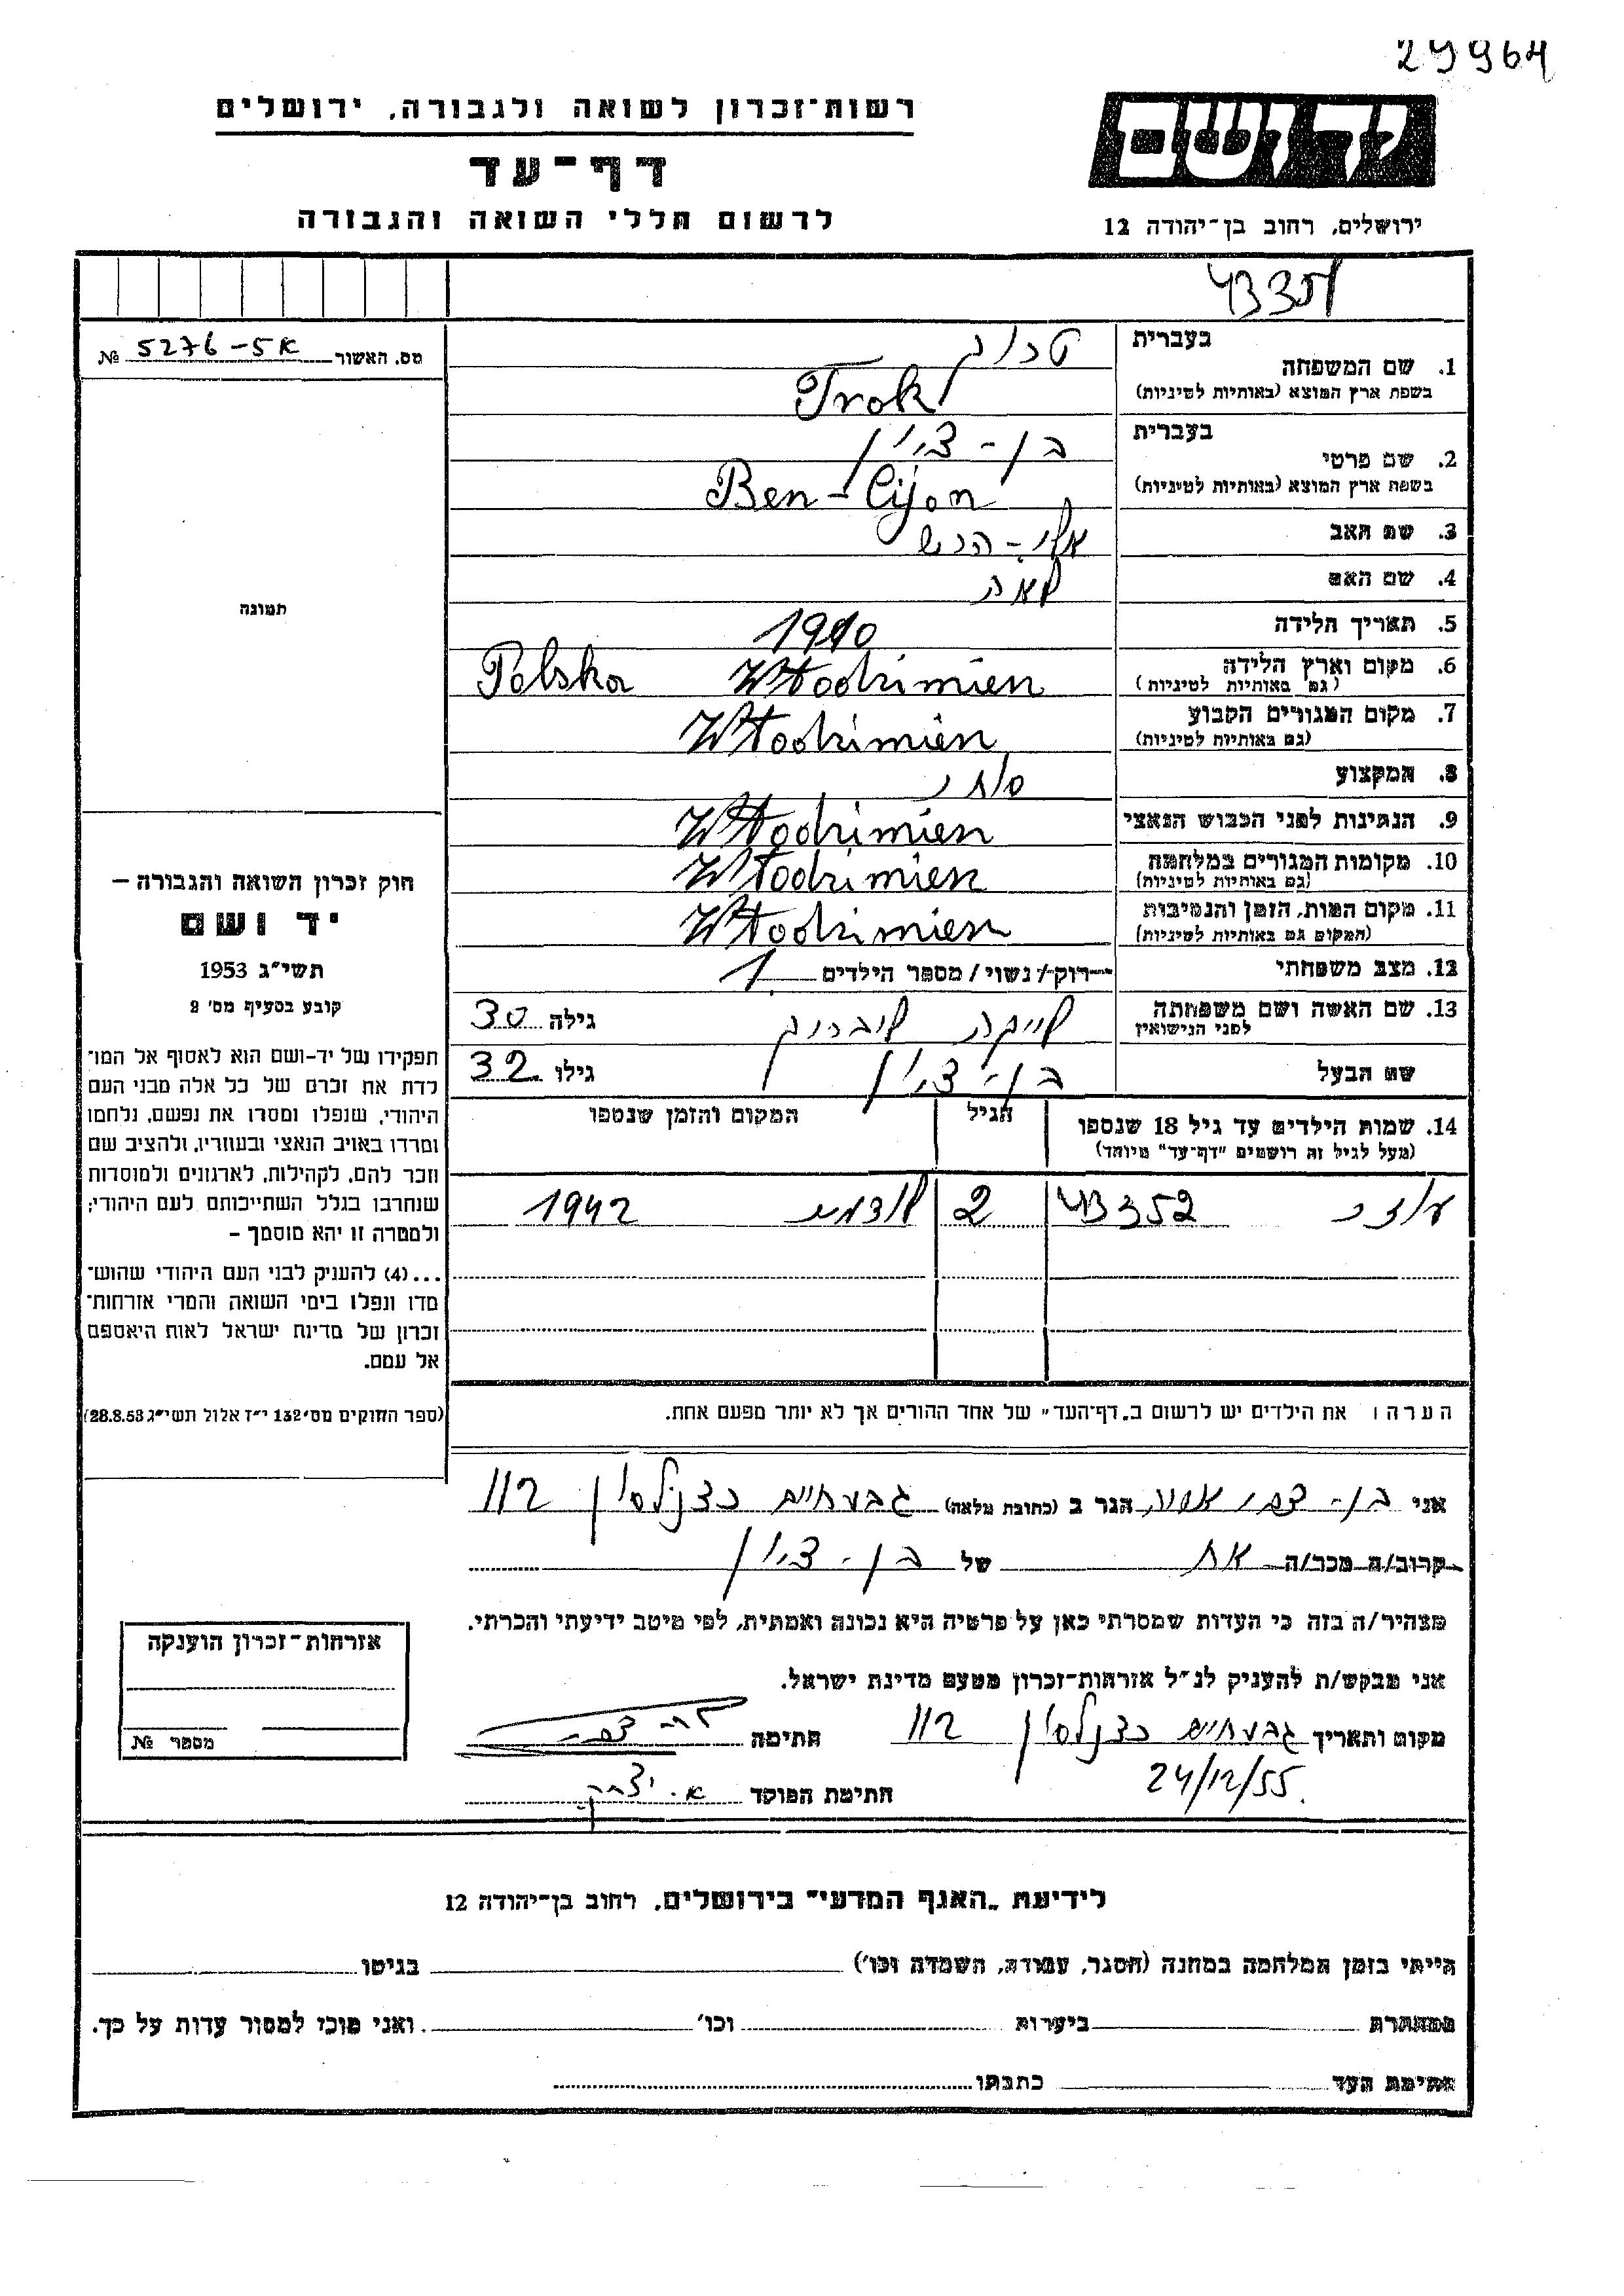 29964
יד ושם
ירושלים, רחוב בן־יהודה 12
רשות־זכרון לשואה ולגבורה, ירושלים
דף־עד
לרשום חללי השואה והגבורה
מס. האשור 5276-5א №
1. שם המשפחה
בעברית טרוק
בשפת ארץ המוצא (באותיות לטיניות) Trok
2. שם פרטי
בעברית בן-ציון
בשפת ארץ המוצא (באותיות לטיניות) Ben-Cijon
3. שם האב
4. שם האם לאה
5. תאריך הלידה 1910
6. מקום וארץ הלידה Włodzimien Polska
(גם באותיות לטיניות)
7. מקום המגורים הקבוע Włodzimien
(גם באותיות לטיניות)
8. המקצוע סוחר
9. הנתינות לפני הכבוש הנאצי Włodzimien
10. מקומות המגורים במלחמה Włodzimien
(גם באותיות לטיניות)
11. מקום המות, הזמן והנסיבות Włodzimien
(המקום גם באותיות לטיניות)
12. מצב משפחתי רוק/נשוי/מספר הילדים 1
13. שם האשה ושם משפחתה
לפני הנישואין גילה 30
שם הבעל בן-ציון גילו 32
14. שמות הילדים עד גיל 18 שנספו הגיל המקום והזמן שנספו
(מעל לגיל זה רושמים "דף־עד" מיוחד)
43352 2 1942
הערה: את הילדים יש לרשום ב„דף־העד" של אחד ההורים אך לא יותר מפעם אחת.
תמונה
חוק זכרון השואה והגבורה –
יד ושם
תשי"ג 1953
קובע בסעיף מס' 2
תפקידו של יד-ושם הוא לאסוף אל המו־
לדת את זכרם של כל אלה מבני העם
היהודי, שנפלו ומסרו את נפשם, נלחמו
ומרדו באויב הנאצי ובעוזריו, ולהציב שם
וזכר להם, לקהילות, לארגונים ולמוסדות
שנחרבו בגלל השתייכותם לעם היהודי;
ולמטרה זו יהא מוסמך –
...(4) להעניק לבני העם היהודי שהוש־
מדו ונפלו בימי השואה והמרי אזרחות־
זכרון של מדינת ישראל לאות היאספם
אל עמם.
(ספר החוקים מס' 132 י"ז אלול תשי"ג 28.8.53)
אני בן-צבי הגר ב (כתובת מלאה) גבעת חיים כצנלסון 112
קרוב/ה מכר/ה אח של בן-ציון
מצהיר/ה בזה כי העדות שמסרתי כאן על פרטיה היא נכונה ואמתית, לפי מיטב ידיעתי והכרתי.
אני מבקש/ת להעניק לנ"ל אזרחות־זכרון מטעם מדינת ישראל.
מקום ותאריך גבעת חיים כצנלסון 112 חתימה
24/12/55.
חתימת הפוקד א. יצחק
אזרחות־זכרון הוענקה
מספר №
לידיעת „האגף המדעי" בירושלים, רחוב בן־יהודה 12
הייתי בזמן המלחמה במחנה (הסגר, עבודה, השמדה וכו') בגיטו
במחתרת ביערות וכו' ואני מוכן למסור עדות על כך.
חתימת העד כתבתו